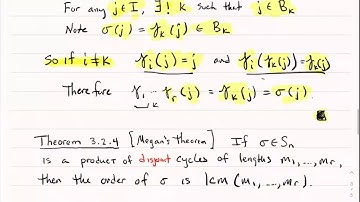 For any j ∈ I, ∃! k such that j ∈ B_k
Note σ(j) = γ_k(j) ∈ B_k
So if i ≠ k γ_i(j) = j and γ_i(γ_k(j)) = γ_k(j)
Therefore γ_1 ... γ_r(j) = γ_k(j) = σ(j).
Theorem 3.2.4 [Megan's theorem] If σ ∈ S_n
is a product of disjoint cycles of lengths m_1, ..., m_r,
then the order of σ is lcm(m_1, ..., m_r).